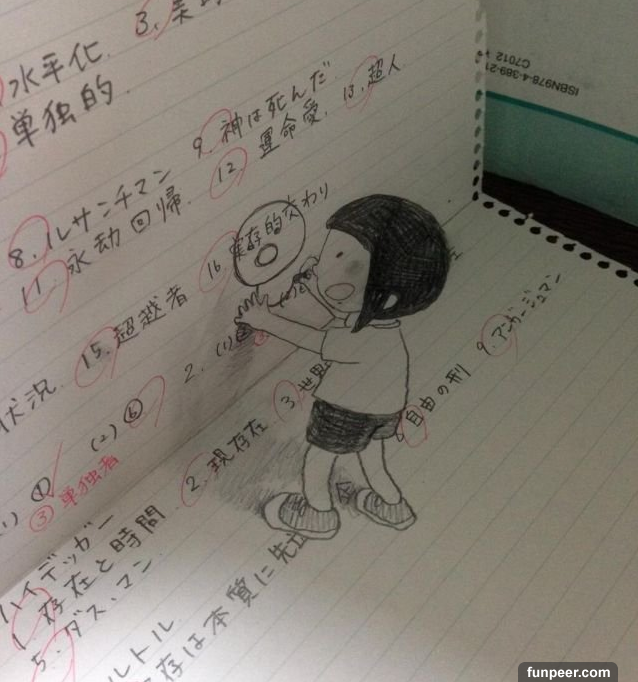 3.
水平化
単独的
8. ルサンチマン 9. 神は死んだ
11. 永劫回帰 12. 運命愛. 13. 超人
状況. 15. 超越者 16. 実存的交わり
(1) ④ (2) ⑥ 2. (1)
③ 単独者
ハイデッガー
1. 存在と時間 2. 現存在 3. 世界
5. ダス・マン
ルトル
存は本質に先立 自由の刑 9. アンガージュマン
ISBN978-4-389-21
C7012
funpeer.com